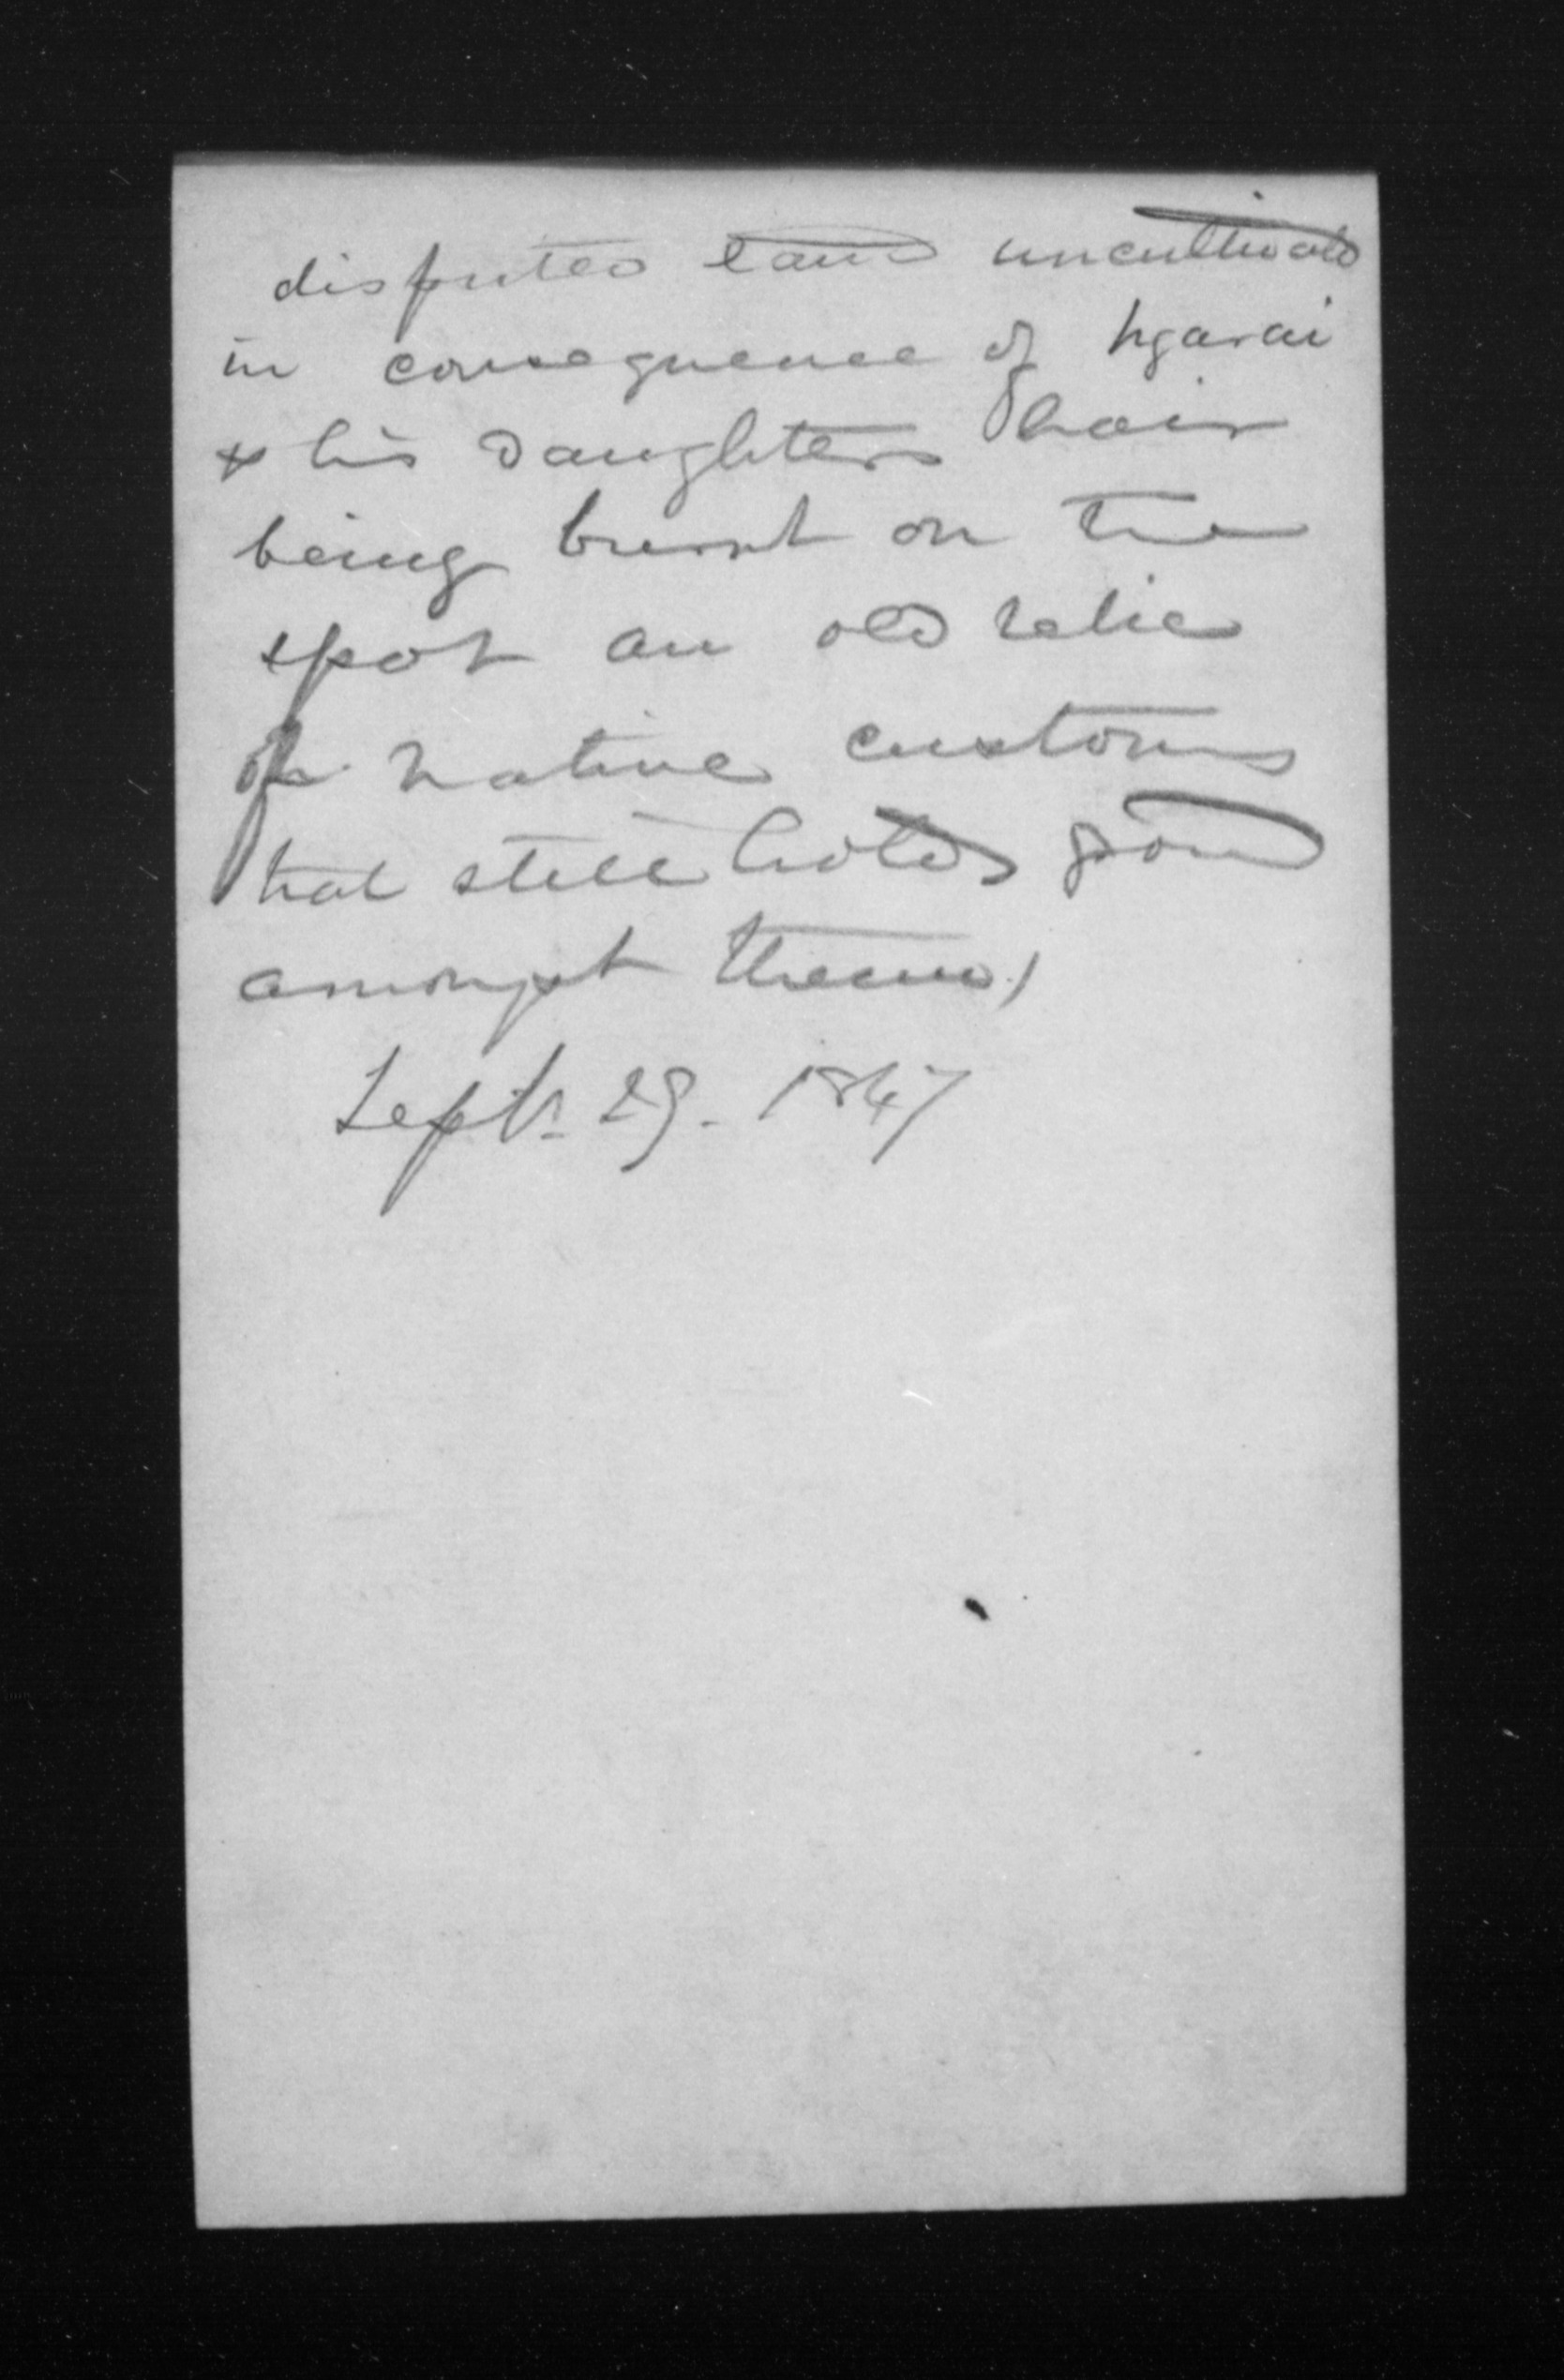 disputed land uncultivated
in consequence of Ngarai
& his daughters hair
being burnt on the
spot an old relic
of native customs
that still holds good
amongst them)
Sept. 29. 1847